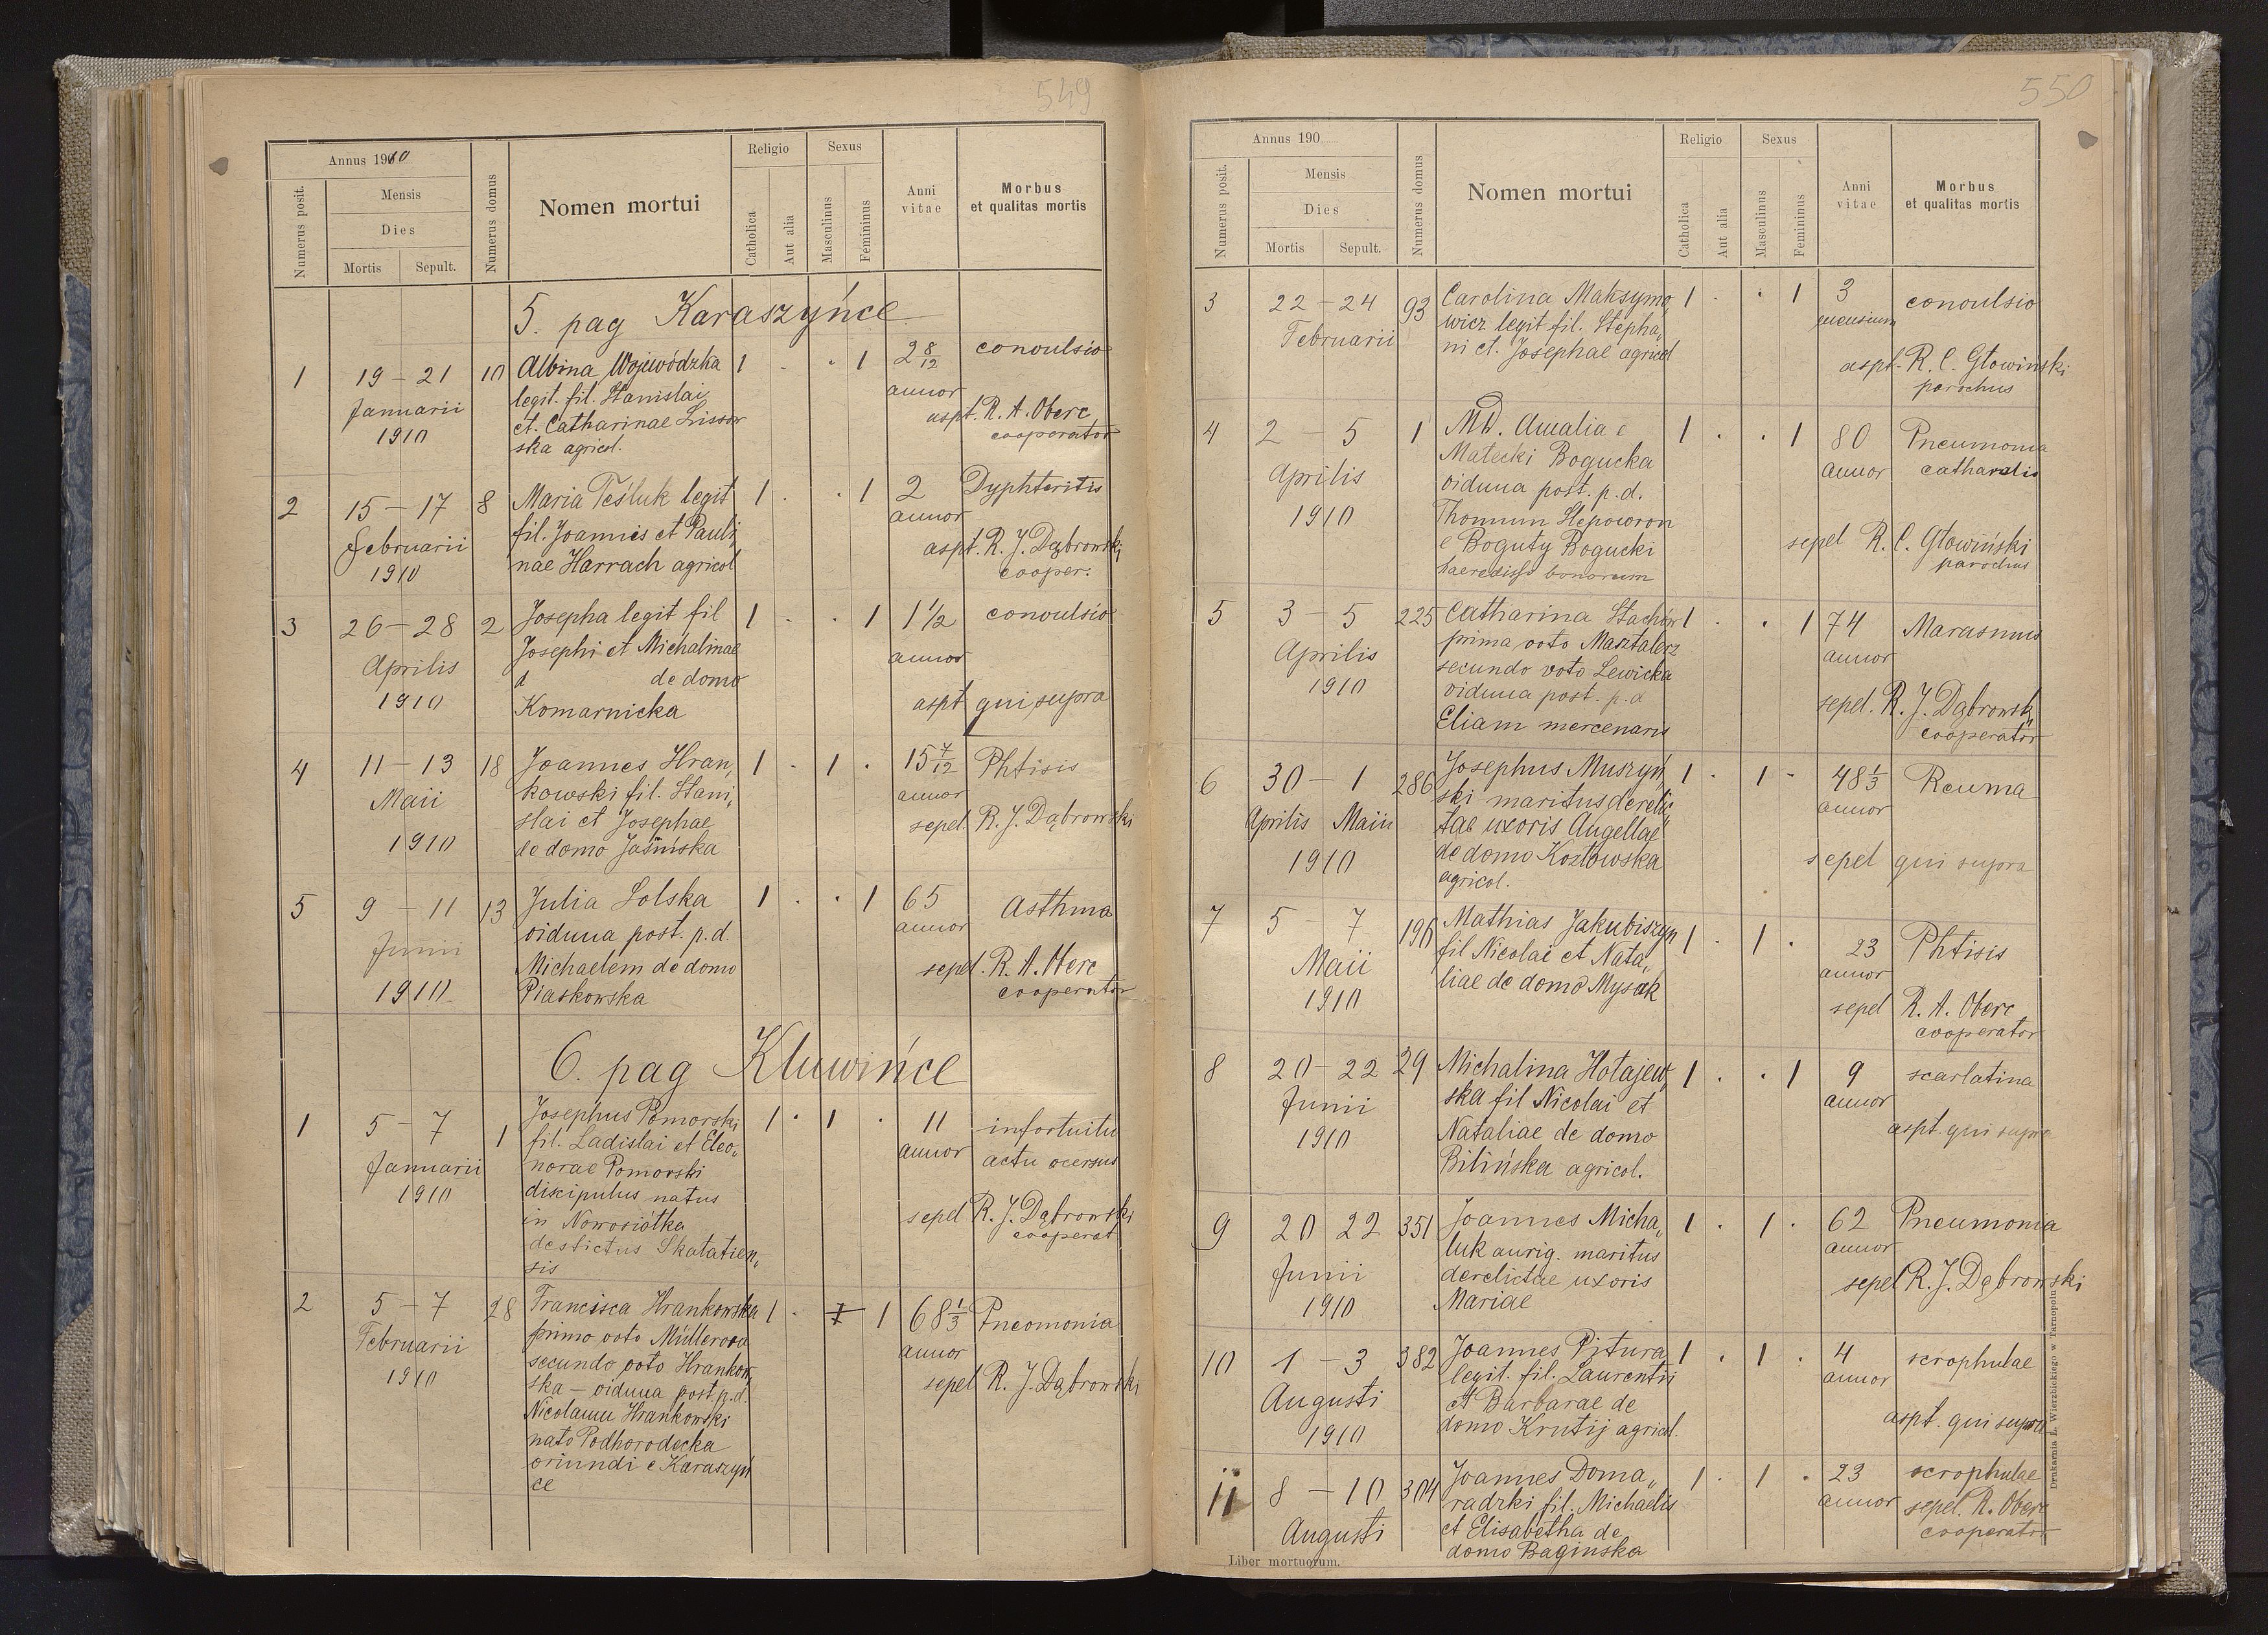 549
Annus 1910
Numerus posit.
Mensis
Dies
Mortis Sepult.
Numerus domus
Nomen mortui
Religio
Catholica
Aut alia
Sexus
Masculinus
Femininus
Anni vitae
Morbus et qualitas mortis
5. pag Karaszyńce
1 19 – 21 10 Albina Wojewódzka 1 . . 1 2 8/12 convulsio
Januarii legit. fil. Stanislai annor
1910 et. Catharinae Lissow aspt. R. A. Oberc
ska agricol. cooperator
2 15 – 17 8 Maria Teśluk legit 1 . . 1 2 Dyphteritis
Februarii fil. Joannis et Pauli, annor
1910 nae Harrach agricol aspt. R. J. Dąbrowski
cooper.
3 26 – 28 2 Josepha legit fil 1 . . 1 1 1/2 convulsio
Aprilis Josephi et Michalinae annor
de domo
1910 Komarnicka aspt qui supra
4 11 – 13 18 Joannes Hran, 1 . 1 . 15 7/12 Phtisis
Maii kowski fil. Stani, annor
slai et Josephae sepel. R. J. Dąbrowski
1910 de domo Jasińska
5 9 – 11 13 Julia Solska 1 . . 1 65 Asthma
Junii vidua post. p. d. annor
Michaelem de domo sepel. R. A. Oberc
1910 Piaskowska cooperator
6. pag Kluwińce
1 5 – 7 1 Josephus Pomorski 1 . 1 . 11 infortuitu
Januarii fil. Ladislai et Eleo, annor actu
1910 norae Pomorski
discipulus natus
in Nowosiółka sepel R. J. Dąbrowski
destictus Skałatien, cooperat
sis
2 5 – 7 28 Francisca Hrankowska 1 . 1 68 1/3 Pneomonia
Februarii primo voto Müllerova annor
1910 secundo voto Hrankow,
ska – vidua post p. d. sepel R. J. Dąbrowski
Nicolaum Hrankowski
nato Podhorodecka
oriundi e Karaszyń
ce
550
Annus 190
Numerus posit.
Mensis
Dies
Mortis Sepult.
Numerus domus
Nomen mortui
Religio
Catholica
Aut alia
Sexus
Masculinus
Femininus
Anni vitae
Morbus et qualitas mortis
3 22 – 24 93 Carolina Maksymo, 1 . . 1 3 convulsio
Februarii wicz legit fil. Stepha, mensium
ni et. Josephae agricol aspt. R. C. Głowiński
parochus
4 2 – 5 1 MD. Amalia e 1 . . 1 80 Pneumonia
Aprilis Małecki Bogucka annor catharalis
1910 vidua post. p. d.
Thomum Slepowron
e Boguty Bogucki sepel R. C. Głowiński
haeredissa bonorum parochus
5 3 – 5 225 Catharina Stachów 1 . . 1 74 Marasmus
Aprilis prima voto Masztalerz annor
1910 secundo voto Lewicka
vidua post. p. d sepel. R. J. Dąbrowsk
Eliam mercenaris cooperator
6 30 – 1 286 Josephus Muszyń, 1 . 1 . 48 1/3 Reuma
Aprilis Maii ski maritus derelic, annor
1910 tae uxoris Angellae
de domo Kozłowska sepel qui supra
agricol.
7 5 – 7 190 Mathias Jakubiszyn 1 . 1 . 23 Phtisis
Maii fil Nicolai et Nata, annor
1910 liae de domo Mysak sepel R. A. Oberc
cooperator
8 20 – 22 29 Michalina Hołajew, 1 . . 1 9 scarlatina
Junii ska fil Nicolai et annor
1910 Nataliae de domo aspt. qui supra
Bilińska agricol.
9 20 22 351 Joannes Micha, 1 . 1 . 62 Pneumonia
Junii luk aurig. maritus annor
derelictae uxoris sepel R. J. Dąbrowski
1910 Mariae
10 1 – 3 382 Joannes Pitura 1 . 1 . 4 scrophulae
Augusti legit. fil. Laurentii annor
et Barbarae de aspt. qui supra
1910 domo Krutij agricol.
11 8 – 10 304 Joannes Doma, 1 . 1 . 23 scrophulae
radzki fil. Michaelis annor sepel. R. Oberc
Augusti et Elisabetha de cooperator
domo Baginska
Liber mortuorum.
Drukarnia L. Wierzbickiego w Tarnopolu